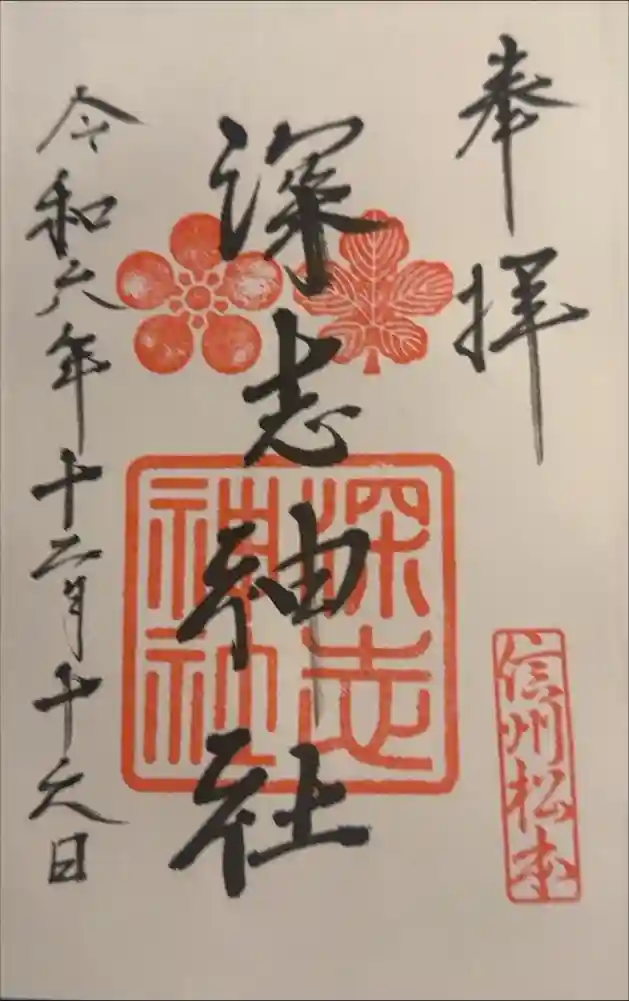 奉拝
信州松本
深志神社
深志神社
令和六年十二月十六日